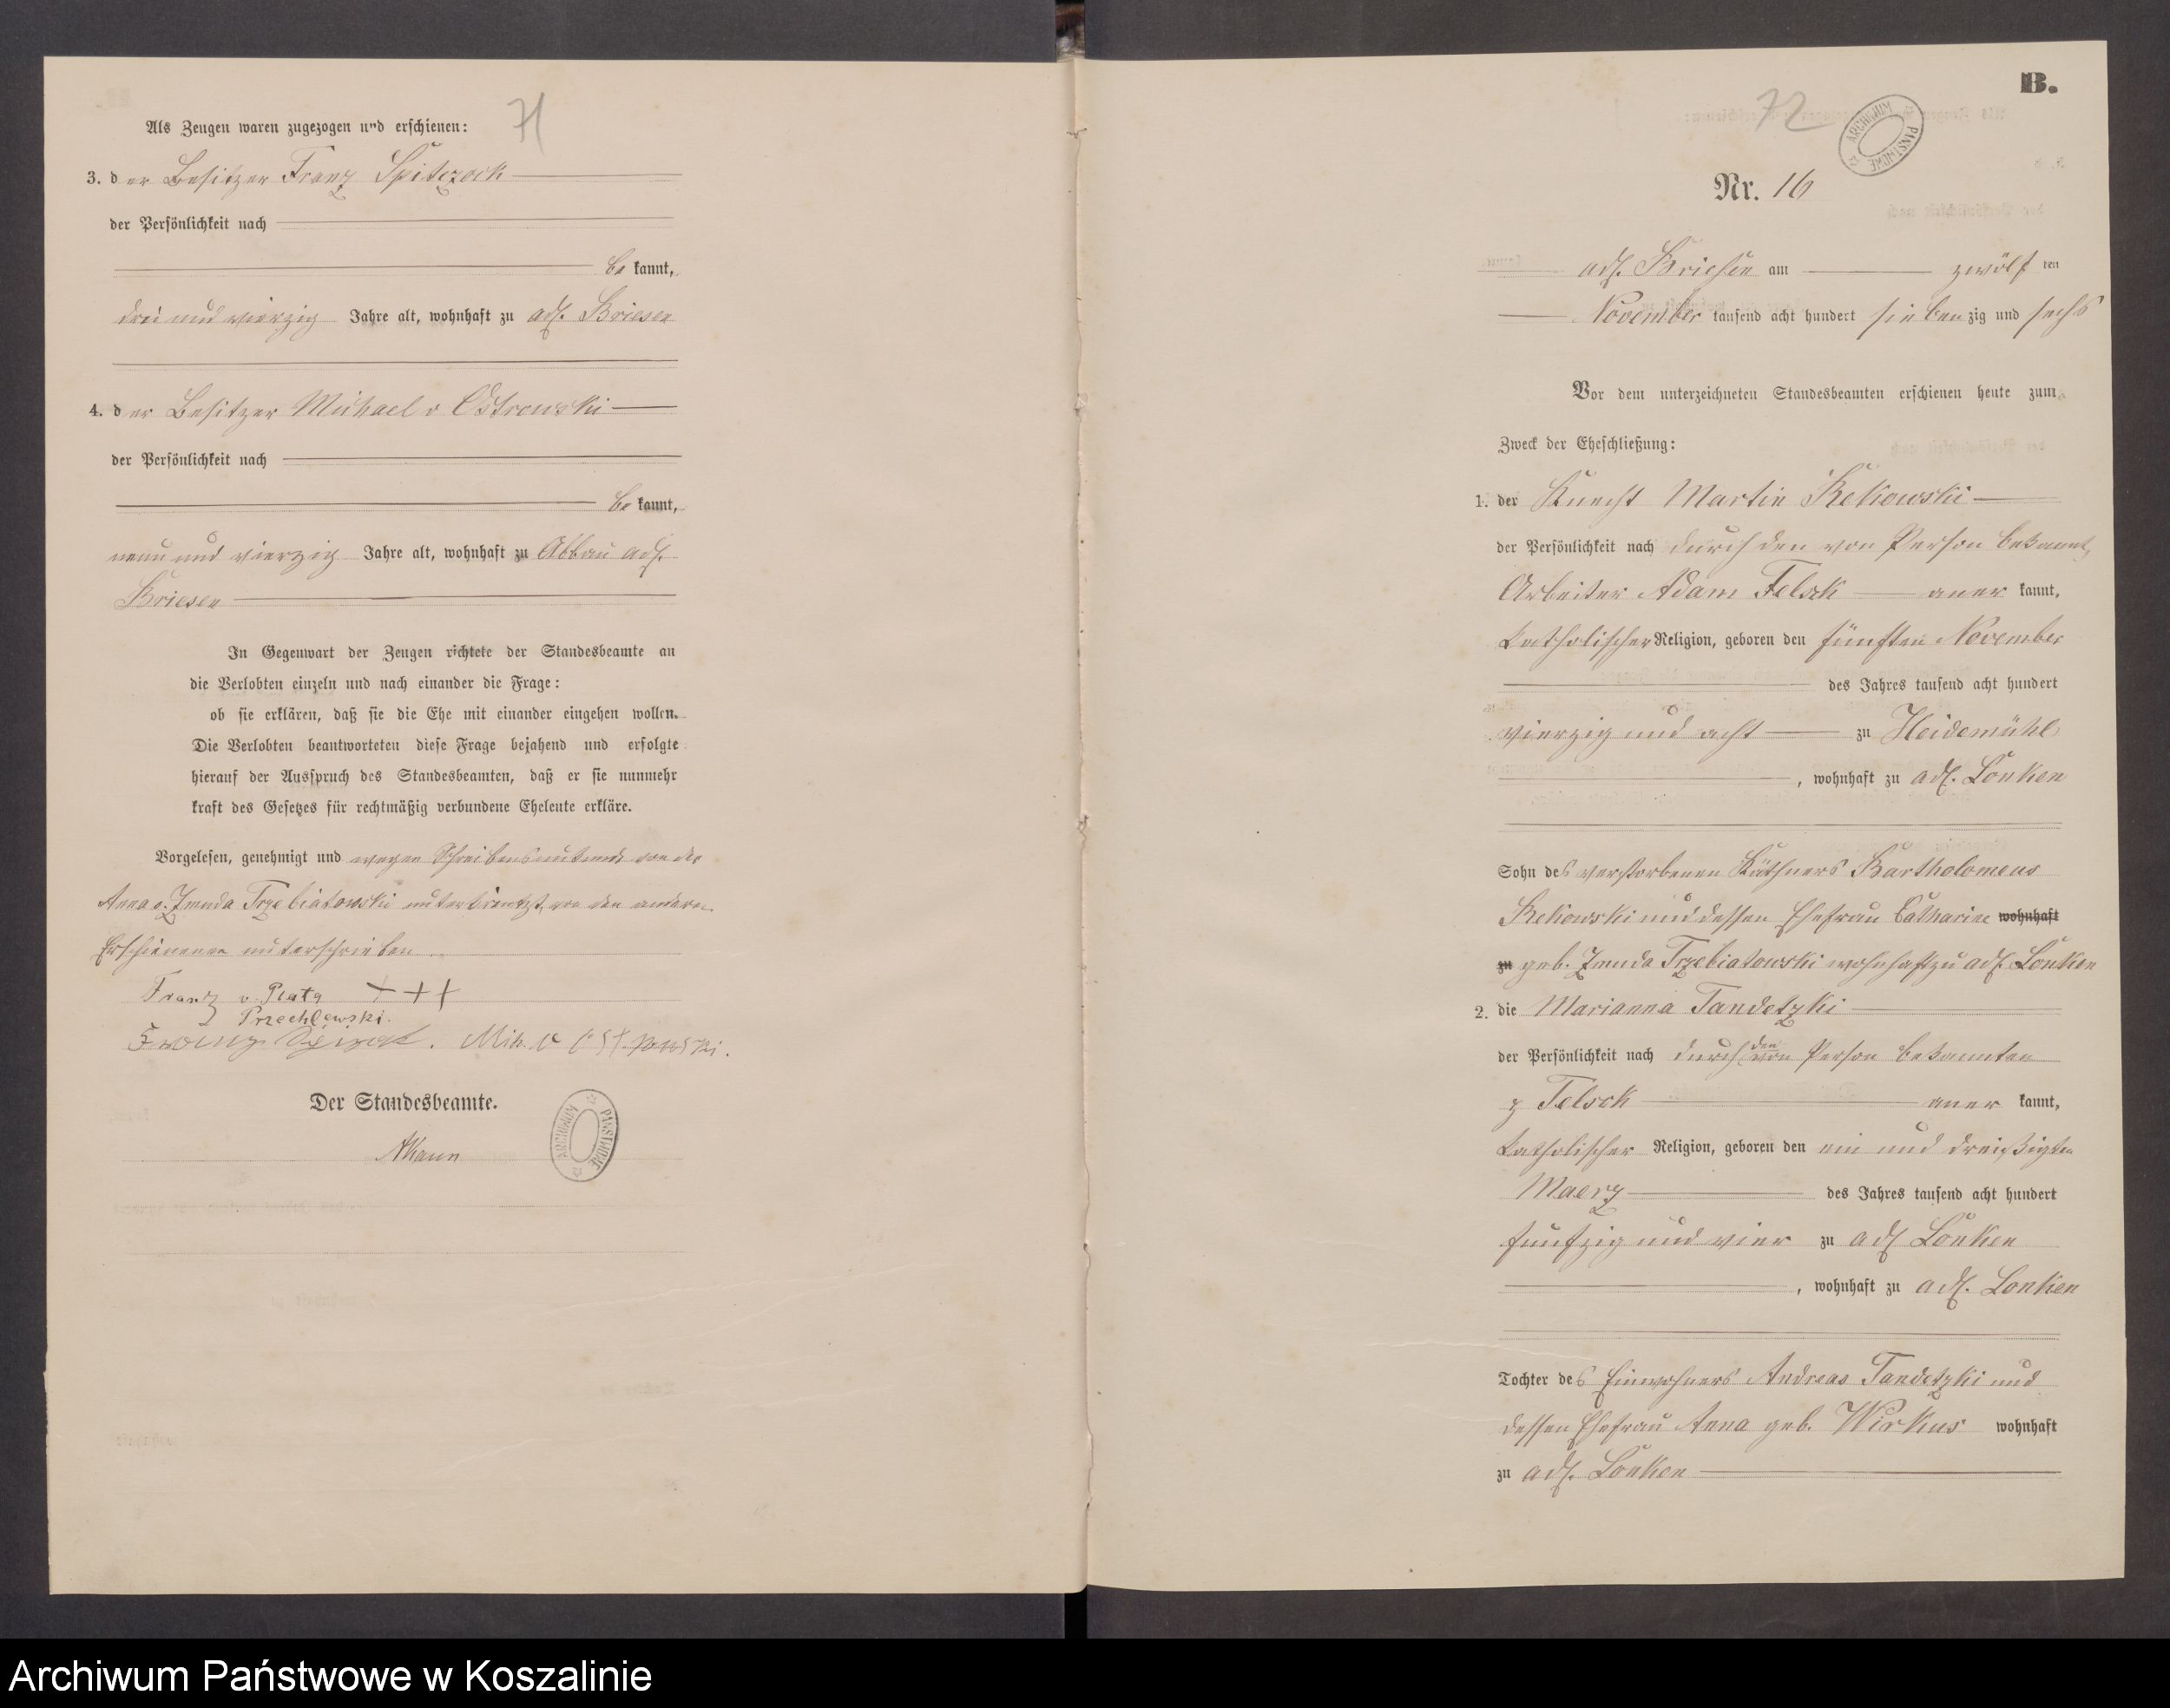 71
Als Zeugen waren zugezogen und erschienen:
3. der Besitzer Franz Spitczock
der Persönlichkeit nach
be kannt,
drei und vierzig Jahre alt, wohnhaft zu adl. Briesen
4. der Besitzer Michael v Ostrowski
der Persönlichkeit nach
be kannt,
neun und vierzig Jahre alt, wohnhaft zu Abbau adl.
Briesen
In Gegenwart der Zeugen richtete der Standesbeamte an
die Verlobten einzeln und nach einander die Frage:
ob sie erklären, daß sie die Ehe mit einander eingehen wollen.
Die Verlobten beantworteten diese Frage bejahend und erfolgte
hierauf der Ausspruch des Standesbeamten, daß er sie nunmehr
kraft des Gesetzes für rechtmäßig verbundene Eheleute erkläre.
Vorgelesen, genehmigt und wegen Schreibensunkunde von der
Anna v. Zmuda Trzebiatowski unterkreutzt, von den andern
Erschienenen unterschrieben
Franz v. Piata +++
Przechlewski.
Mih. v
Der Standesbeamte.
ARCHIWUM PAŃSTWOWE
B.
72
ARCHIWUM PAŃSTWOWE
Nr. 16
adl. Briesen am zwölf ten
November tausend acht hundert siebenzig und sechs
Vor dem unterzeichneten Standesbeamten erschienen heute zum
Zweck der Eheschließung:
1. der Knecht Martin Rekowski
der Persönlichkeit nach durch den von Person bekannt
Arbeiter Adam Felsck aner kannt,
katholischer Religion, geboren den fünften November
des Jahres tausend acht hundert
vierzig und acht zu Heidemühl
, wohnhaft zu adl. Lonken
Sohn des verstorbenen Käthners Bartholomeus
Rekowski und dessen Ehefrau Catharine wohnhaft
zu geb. Zmuda Trzebiatowski wohnhaft zu adl. Lonken
2. die Marianna Tandetzki
der Persönlichkeit nach durch den von Person bekannten
Felsck aner kannt,
katholischer Religion, geboren den ein und dreißigten
Maerz des Jahres tausend acht hundert
funfzig und vier zu adl Lonken
, wohnhaft zu adl. Lonken
Tochter des Einwohners Andreas Tandetzki und
dessen Ehefrau Anna geb. Wirkus wohnhaft
zu adl. Lonken
Archiwum Państwowe w Koszalinie